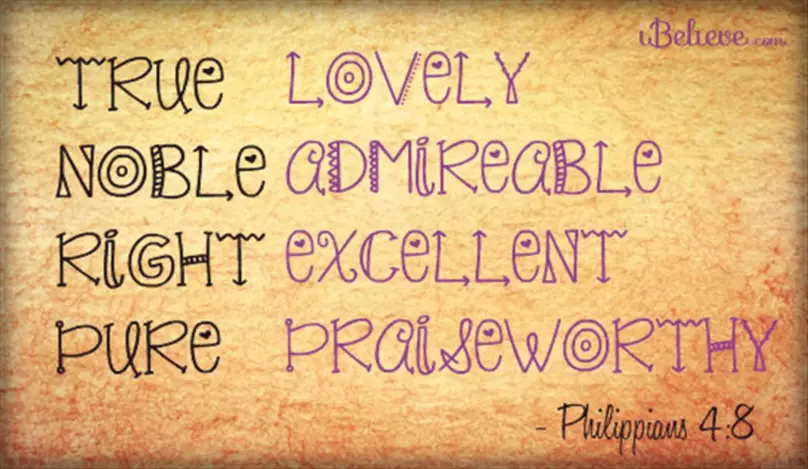 iBelieve.com
TRUE LOVELY
NOBLE ADMIREABLE
RIGHT EXCELLENT
PURE PRAISEWORTHY
- Philippians 4:8